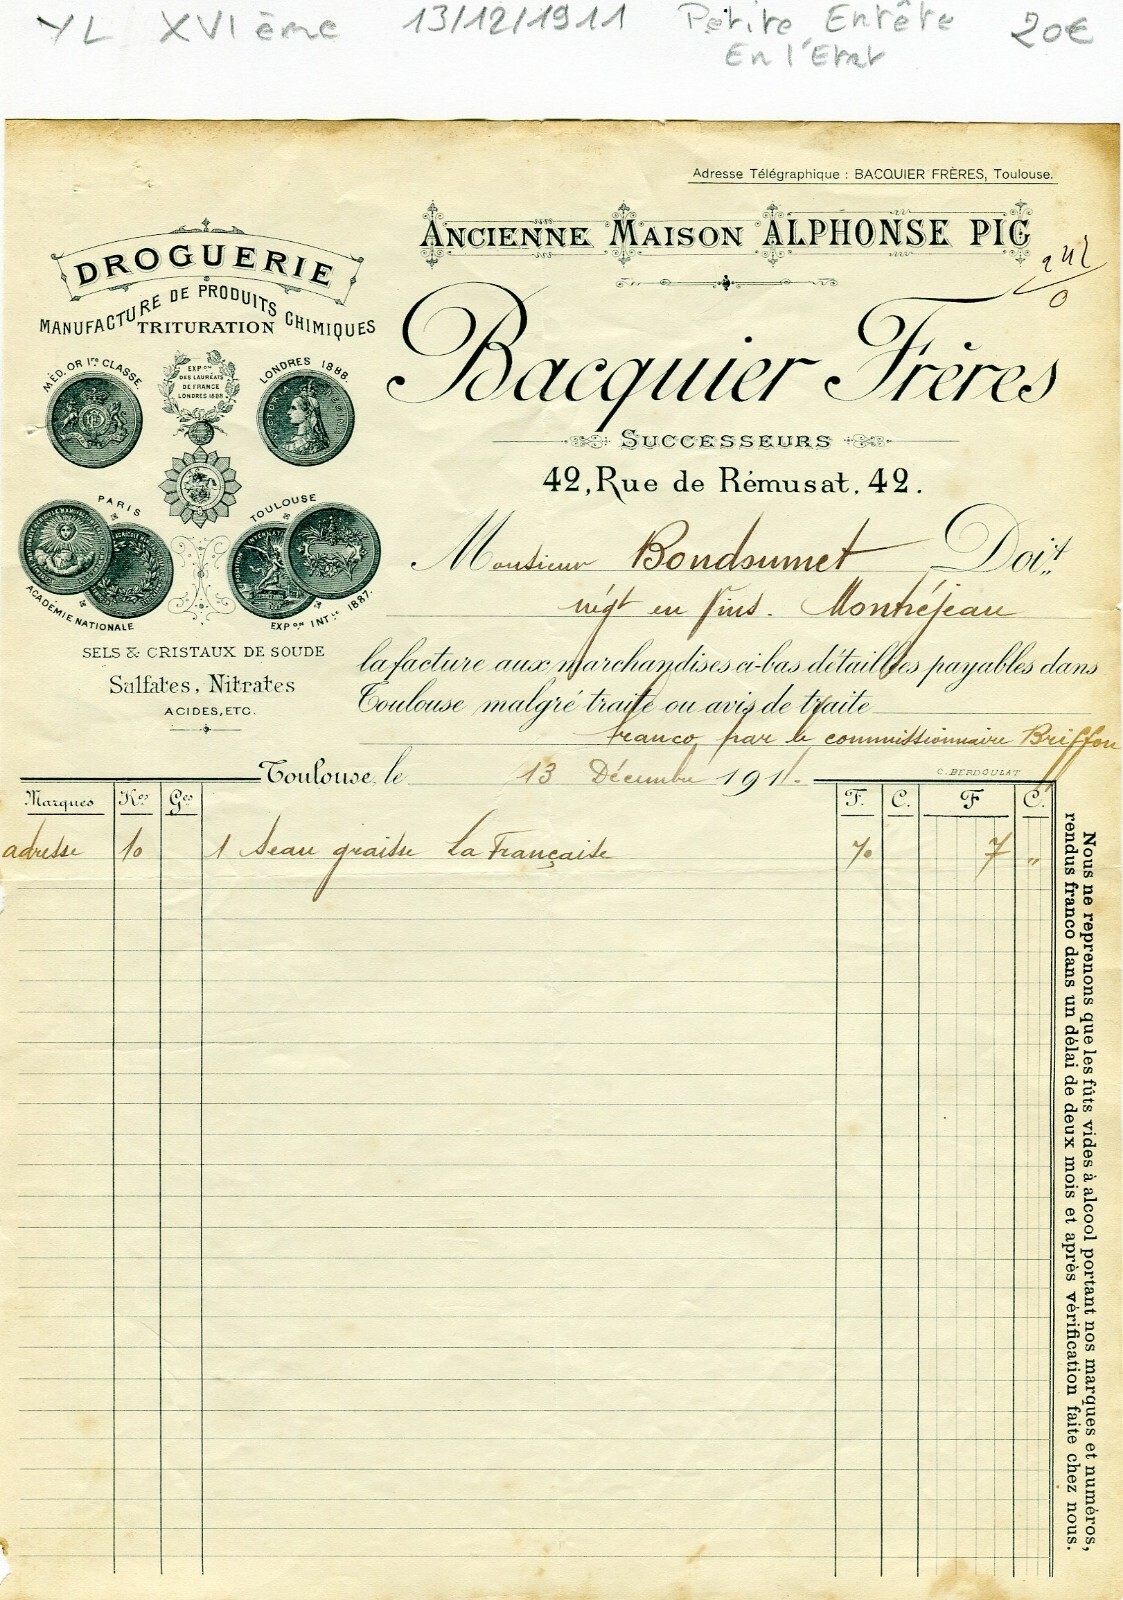 YL XVIème 13/12/1911 Petite Entête 20€
En l'Etat
Adresse Télégraphique : BACQUIER FRÈRES, Toulouse.
ANCIENNE MAISON ALPHONSE PIG
DROGUERIE
MANUFACTURE DE PRODUITS CHIMIQUES
TRITURATION
MÉD. OR 1re CLASSE.
EXPon
DES LAURÉATS
DE FRANCE
LONDRES 1888
LONDRES 1888.
PARIS
ACADEMIE NATIONALE
TOULOUSE
EXPon INTle 1887.
SELS & CRISTAUX DE SOUDE
Sulfates, Nitrates
ACIDES, ETC.
Bacquier Frères
SUCCESSEURS
42, Rue de Rémusat. 42.
Monsieur Doit
négt en vins. Montréjeau
la facture aux marchandises ci-bas détaillées payables dans
Toulouse malgré traite ou avis de traite
franco par le commissionnaire Briffon
Toulouse, le 13 Décembre 1911.
C. BERDOULAT
Marques Kos Ges F. C. F C.
adresse 10 1 Seau graisse La Française 7 "
Nous ne reprenons que les fûts vides à alcool portant nos marques et numéros,
rendus franco dans un délai de deux mois et après vérification faite chez nous.